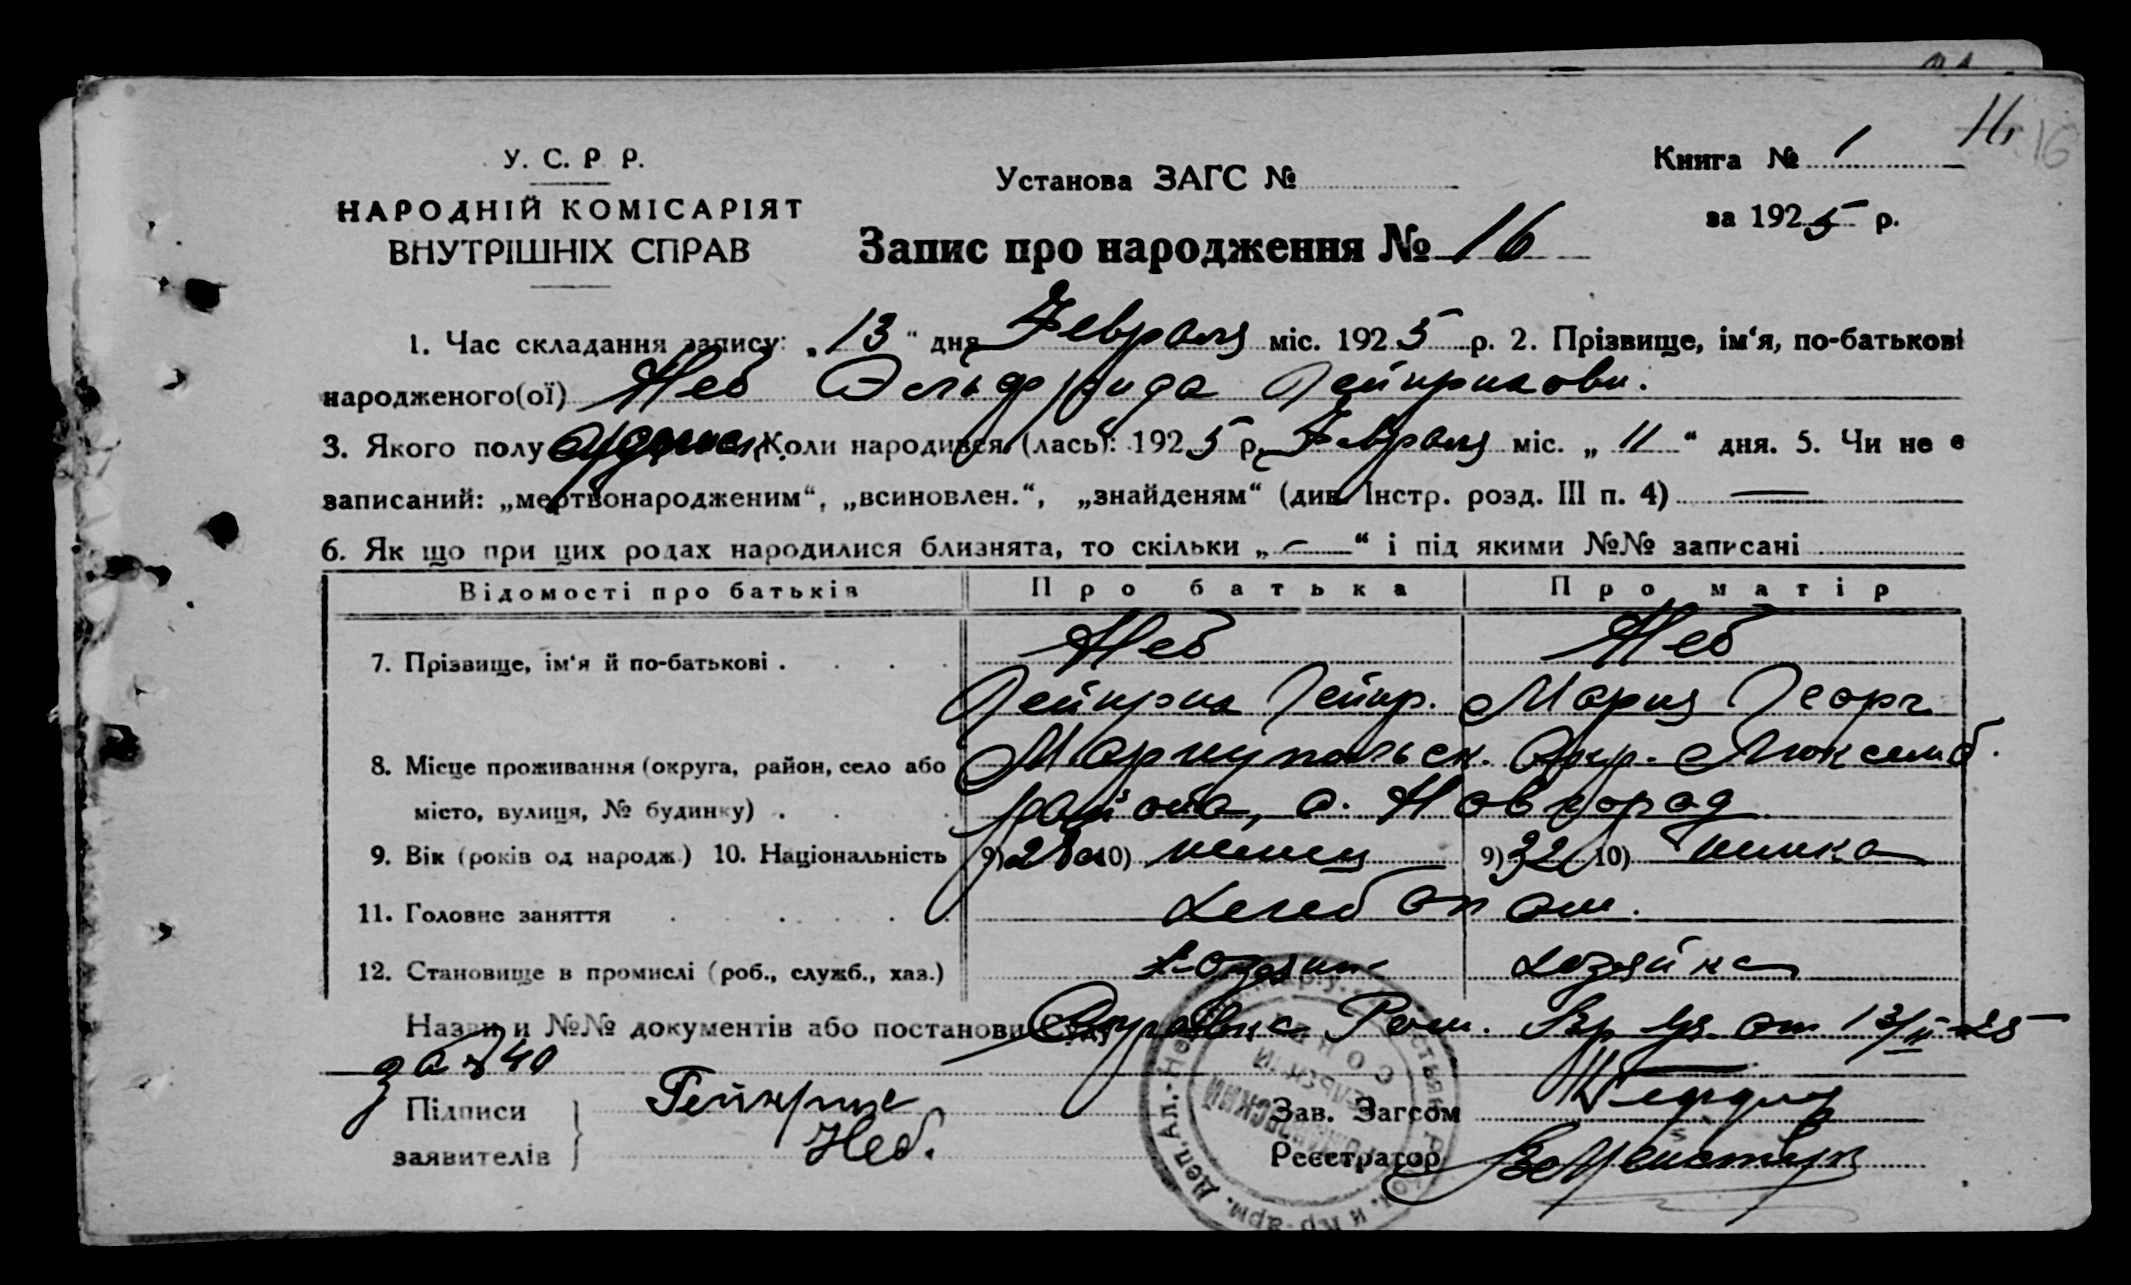 16
У. С. Р. Р.
НАРОДНІЙ КОМІСАРІЯТ
ВНУТРІШНІХ СПРАВ
Установа ЗАГС №
Книга № 1
за 1925 р.
Запис про народження № 16
1. Час складання запису: „13“ дня Февраля міс. 1925 р. 2. Прізвище, ім‘я, по-батькові
народженого(ої) Неб Эльфрида Гейнрихови.
3. Якого полу Коли народився (лась): 1925 р. Февраля міс. „11“ дня. 5. Чи не є
записаний: „мертвонародженим“, „всиновлен.“, „знайденям“ (див. Інстр. розд. III п. 4) —
6. Як що при цих родах народилися близнята, то скільки „—“ і під якими №№ записані
Відомості про батьків Про батька Про матір
7. Прізвище, ім‘я й по-батькові . Неб Неб
Гейнрих Гейнр. Мария Георг.
8. Місце проживання (округа, район, село або Мариупольск. Окр. Люксемб.
місто, вулиця, № будинку) . района, с. Новгород
9. Вік (років од народж.) 10. Національність 9) 28 10) немец 9) 32 10) немка
11. Головне заняття хлебопаш.
12. Становище в промислі (роб., служб., хаз.) хозяин хозяйка
Назви и №№ документів або постанови Суду Справка от 13/II-25
за № 40
Підписи
заявителів
Гейнрих
Неб.
Зав. Загсом
Реєстратор